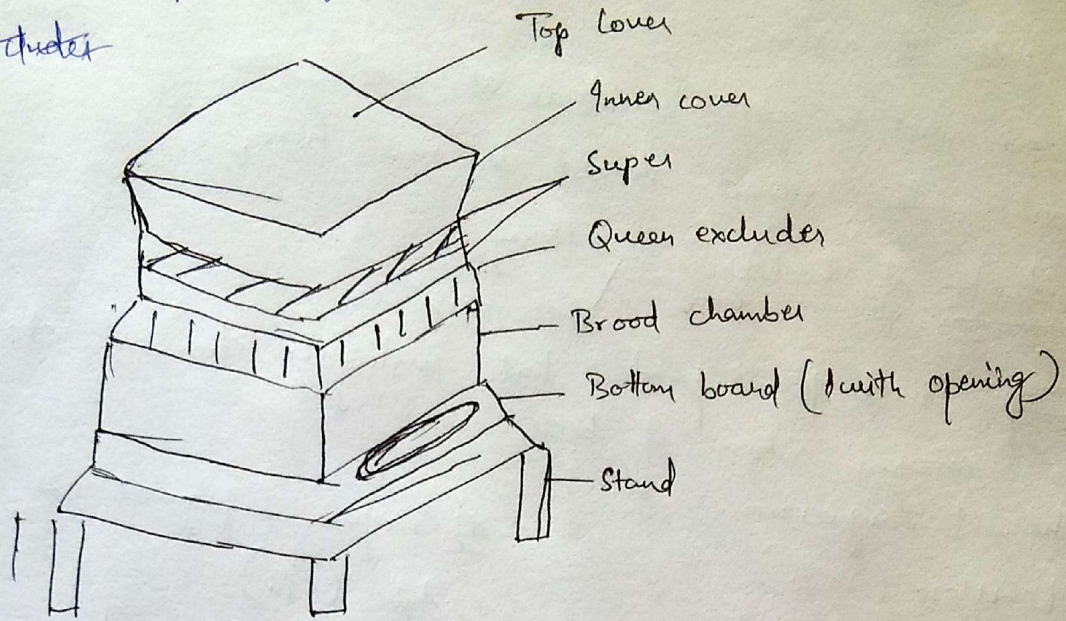 Top Cover
Inner cover
Super
Queen excluder
Brood chamber
Bottom board (with opening)
Stand